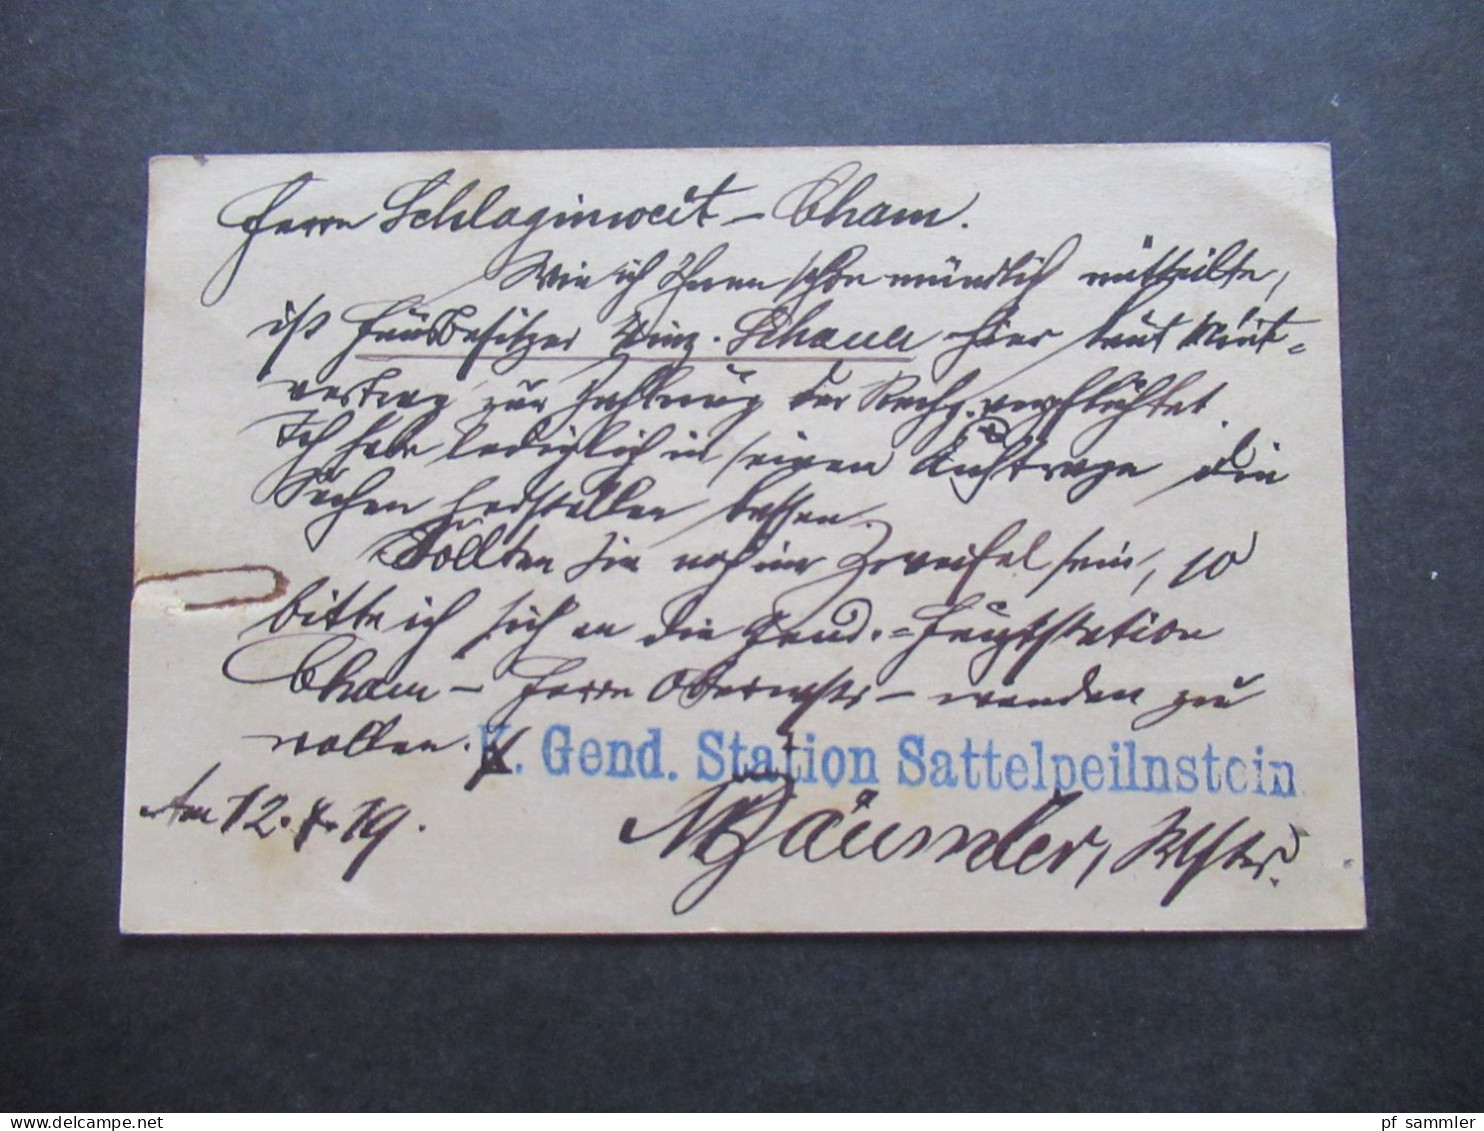 Herrn Schlagintweit – Cham.
Wie ich Ihnen schon mündlich mitteilte,
ist Hausbesitzer Vinz. Schauer hier laut Miet-
vertrag zur Zahlung der Rechg. verpflichtet.
Ich habe lediglich in seinem Auftrage die
Sachen herstellen lassen.
Sollten Sie noch im Zweifel sein, so
bitte ich sich an die Gend.=Hauptstation
Cham – Herrn Oberwchtr – wenden zu
wollen.
K. Gend. Station Sattelpeilnstein
Am 12. 19.
Bäumler, Wchtr.
pf_sammler